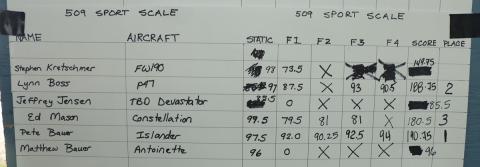 509 SPORT SCALE 509 SPORT SCALE
NAME AIRCRAFT STATIC F1 F2 F3 F4 SCORE PLACE
Stephen Kretschmer FW190 98 73.5 X X X 149.75
Lynn Boss P47 97 87.5 X 93 90.5 188.75 2
Jeffrey Jensen TBD Devastator 85.5 0 85.5
Ed Mason Constellation 99.5 79.5 81 81 X 180.5 3
Pete Bauer Islander 97.5 92.0 90.25 92.5 94 190.75 1
Matthew Bauer Antoinette 96 0 X X X 96